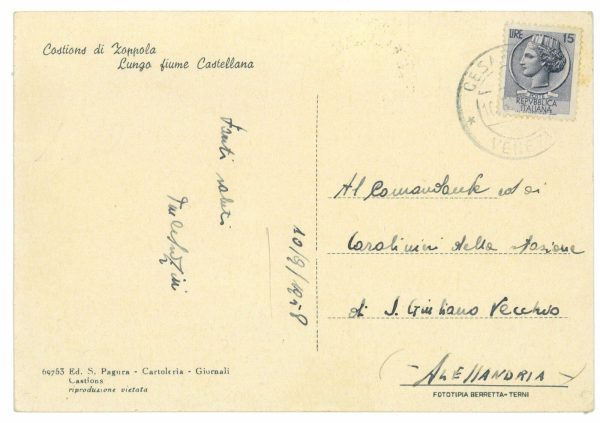 Costions di Zoppola
Lungo fiume Castellana
LIRE 15
REPVBBLICA
ITALIANA
VENEZ
Tanti saluti
Al Comandante ed ai
Carabinieri della stazione
di S. Giuliano Vecchio
(ALESSANDRIA)
69753 Ed. S. Pagura - Cartoleria - Giornali
Castions
riproduzione vietata
FOTOTIPIA BERRETTA-TERNI